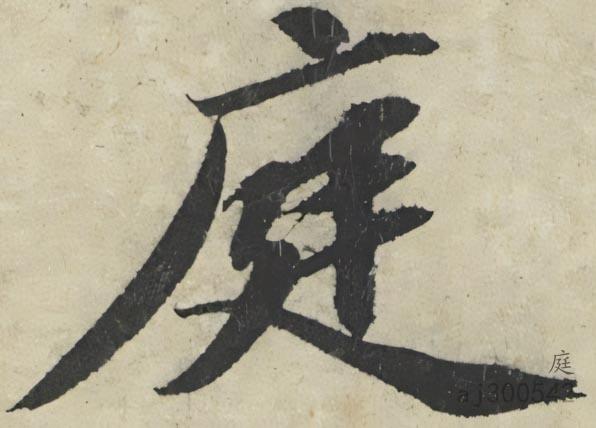 庭
庭
aj300543